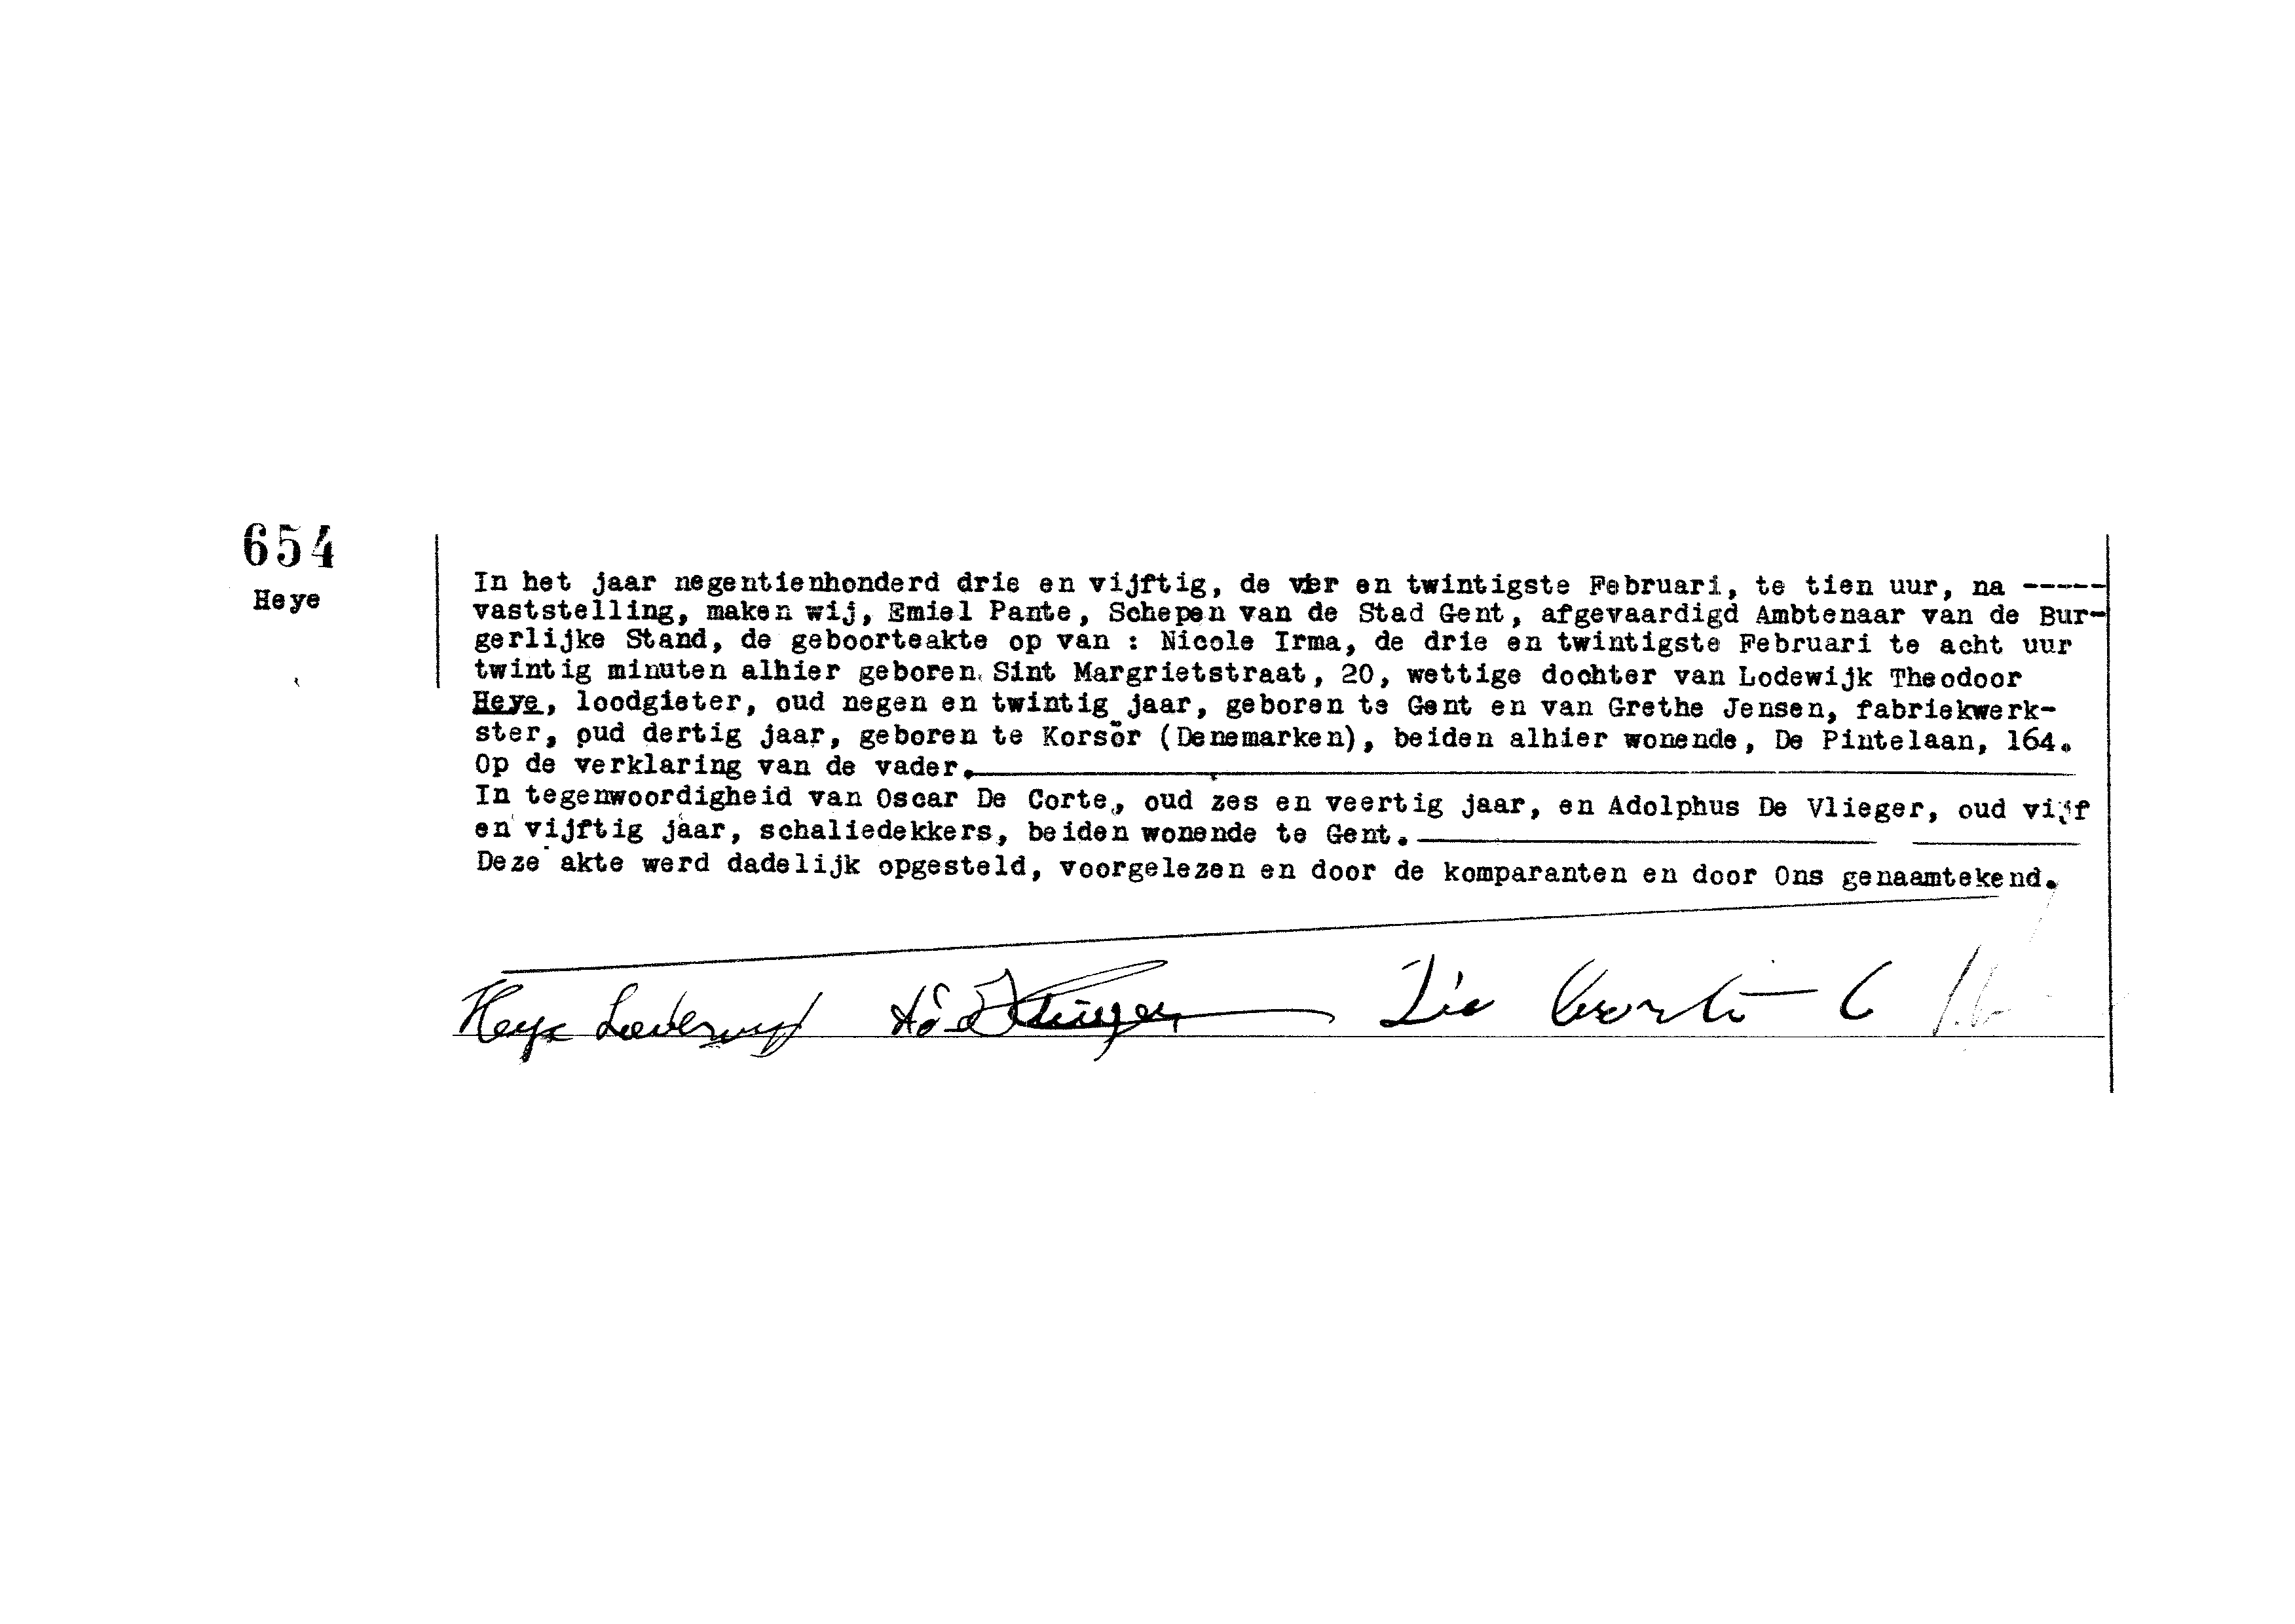 654
Heye
In het jaar negentienhonderd drie en vijftig, de vier en twintigste Februari, te tien uur, na -----
vaststelling, maken wij, Emiel Pante, Schepen van de Stad Gent, afgevaardigd Ambtenaar van de Bur-
gerlijke Stand, de geboorteakte op van : Nicole Irma, de drie en twintigste Februari te acht uur
twintig minuten alhier geboren Sint Margrietstraat, 20, wettige dochter van Lodewijk Theodoor
Heye, loodgieter, oud negen en twintig jaar, geboren te Gent en van Grethe Jensen, fabriekwerk-
ster, oud dertig jaar, geboren te Korsör (Denemarken), beiden alhier wonende, De Pintelaan, 164.
Op de verklaring van de vader.
In tegenwoordigheid van Oscar De Corte, oud zes en veertig jaar, en Adolphus De Vlieger, oud vijf
en vijftig jaar, schaliedekkers, beiden wonende te Gent.
Deze akte werd dadelijk opgesteld, voorgelezen en door de komparanten en door Ons genaamtekend.
Heye Lodewijk